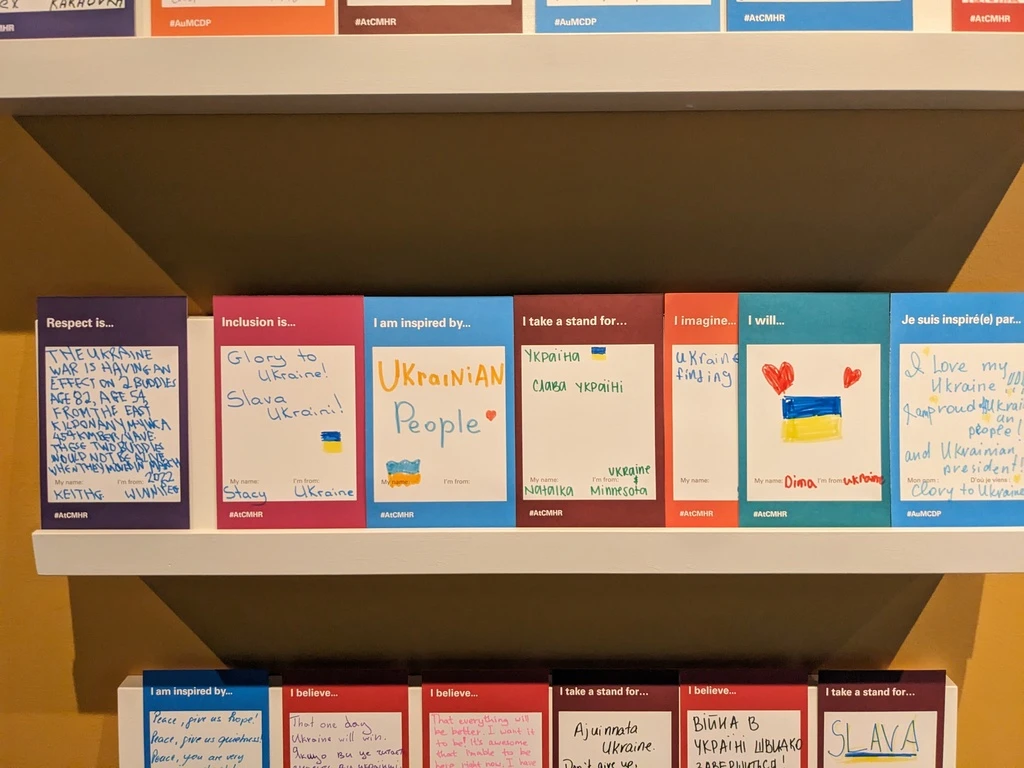 #AuMCDP
#AtCMHR
#AuMCDP
#AtCMHR
#AtCMHR
Respect is...
THE UKRAINE
WAR IS HAVING AN
EFFECT ON 2 BUDDIES
AGE 82, AGE 54
FROM THE EAST
KILDONAN
THESE TWO BUDDIES
WOULD NOT BE ALIVE
WHEN THEY MOVED IN MARCH
2022
My name: I'm from:
KEITH G. WINNIPEG
#AtCMHR
Inclusion is...
Glory to
Ukraine!
Slava
Ukraini!
Stacy Ukraine
#AtCMHR
I am inspired by...
UKRAINIAN
People
My name: I'm from:
#AtCMHR
I take a stand for...
Україна
Слава Україні
Ukraine
&
Natalka Minnesota
#AtCMHR
I imagine...
Ukraine
finding
My name:
#AtCMHR
I will...
My name: Dima I'm from: Ukraine
#AtCMHR
Je suis inspiré(e) par...
I Love my
Ukraine
I am proud Ukraini
an
people!
and Ukrainian
president!
Mon nom : D'où je viens :
Glory to Ukraine
#AuMCDP
I am inspired by...
Peace, give us hope!
Peace, give us quietness!
Peace, you are very
I believe...
That one day
Ukraine will win.
Якщо ви це читаєте
I believe...
That everything will
be better. I want it
to be! It's awesome
that I'm able to be
here right now. I have
I take a stand for...
Ajuinnata
Ukraine.
Don't give up,
I believe...
ВІЙНА В
УКРАЇНІ ШВИДКО
ЗАВЕРШИТЬСЯ!
I take a stand for...
SLAVA